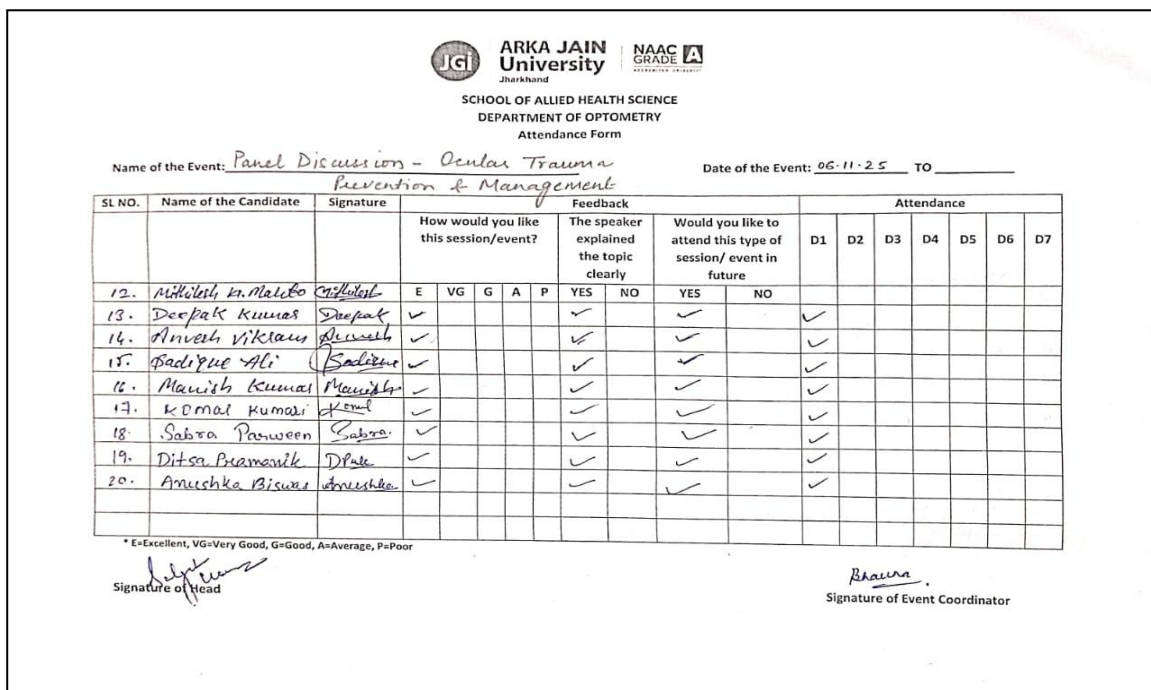 JGi
ARKA JAIN
University
Jharkhand
NAAC
GRADE A
ACCREDITED UNIVERSITY
SCHOOL OF ALLIED HEALTH SCIENCE
DEPARTMENT OF OPTOMETRY
Attendance Form
Name of the Event: Panel Discussion - Ocular Trauma
Prevention & Management
Date of the Event: 06.11.25 TO
SL NO. Name of the Candidate Signature Feedback Attendance
How would you like this session/event? The speaker explained the topic clearly Would you like to attend this type of session/ event in future D1 D2 D3 D4 D5 D6 D7
12. Mithilesh Kr. Mahto Mithilesh E VG G A P YES NO YES NO
13. Deepak Kumar Deepak ✓ ✓ ✓ ✓
14. Anvesh Vikram Anvesh ✓ ✓ ✓ ✓
15. Sadique Ali Sadique ✓ ✓ ✓ ✓
16. Manish Kumar Manish ✓ ✓ ✓ ✓
17. Komal Kumari Komal ✓ ✓ ✓ ✓
18. Sabra Parween Sabra. ✓ ✓ ✓ ✓
19. Ditsa Pramanik ✓ ✓ ✓ ✓
20. Anushka Biswas Anushka ✓ ✓ ✓ ✓
* E=Excellent, VG=Very Good, G=Good, A=Average, P=Poor
Signature of Head
Signature of Event Coordinator